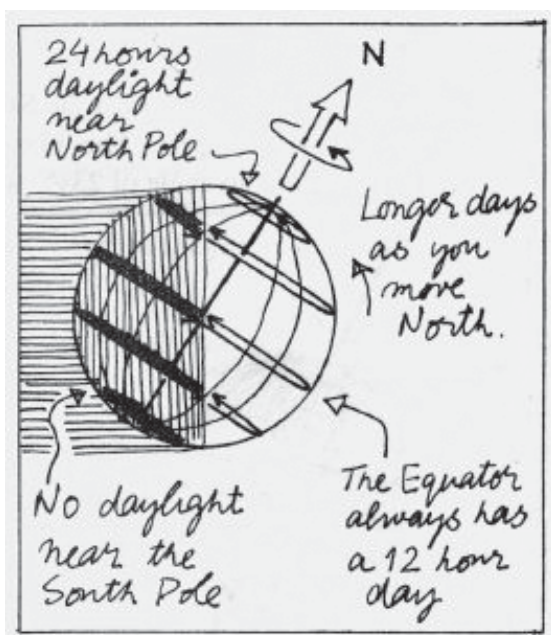 24 hours
daylight
near
North Pole
N
Longer days
as you
move
North.
No daylight
near the
South Pole
The Equator
always has
a 12 hour
day